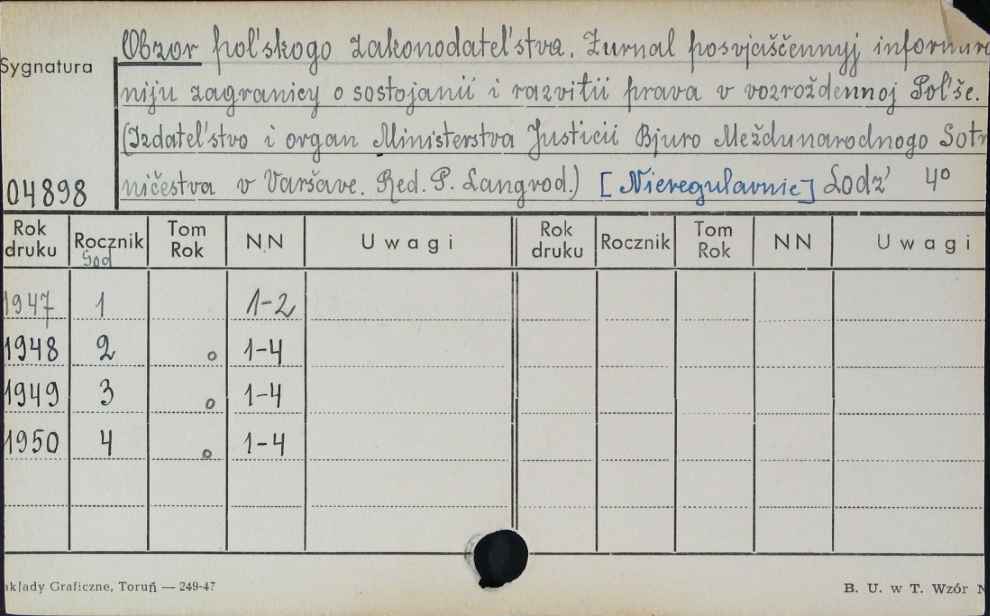 Obzor pol'skogo zakonodatel'stva. Žurnal posvjaščennyj informiro
Sygnatura
niju zagranicy o sostojanii i razvitii prava v vozroždennoj Pol'še.
(Izdatel'stvo i organ Ministerstva Justicii Bjuro Meždunarodnogo Sotr
04898
ničestva v Varšave. Red. P. Langrod.) [Nieregularnie] Lodz' 4°
Rok druku Rocznik God Tom Rok NN Uwagi Rok druku Rocznik Tom Rok NN Uwagi
1947 1 1-2
1948 2 o 1-4
1949 3 o 1-4
1950 4 o 1-4
akłady Graficzne, Toruń — 249-47 B. U. w T. Wzór N